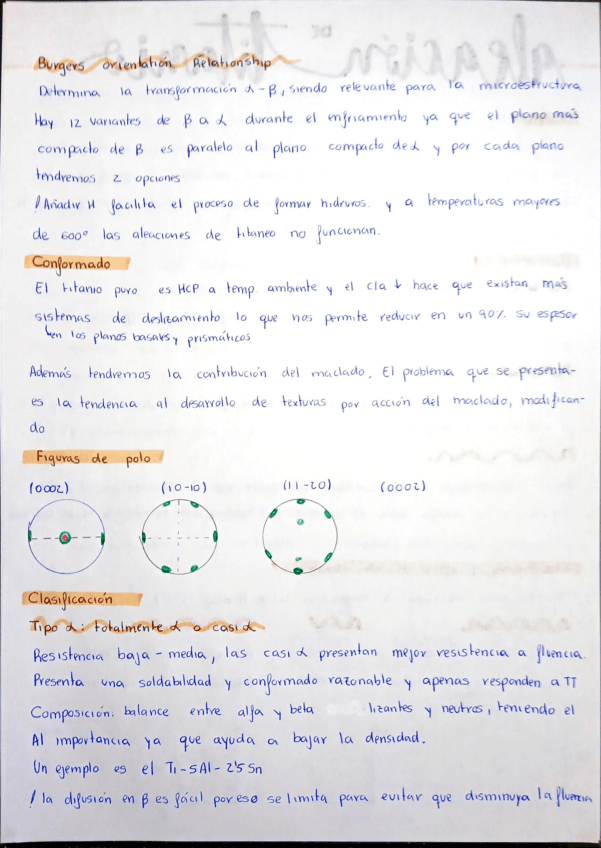 Burgers orientation Relationship
Determina la transformación α-β, siendo relevante para la microestructura
Hay 12 variantes de β a α durante el enfriamiento ya que el plano más
compacto de β es paralelo al plano compacto de α y por cada plano
tendremos 2 opciones
! Añadir H facilita el proceso de formar hidruros. y a temperaturas mayores
de 600° las aleaciones de titaneo no funcionan.
Conformado
El titanio puro es HCP a temp. ambiente y el c/a ↓ hace que existan más
sistemas de deslizamiento lo que nos permite reducir en un 90% su espesor
↳ en los planos basales y prismáticos
Además tendremos la contribución del maclado. El problema que se presenta-
es la tendencia al desarrollo de texturas por acción del maclado, modifican-
do
Figuras de polo
(0002) (10-10) (11-20) (0002)
Clasificación
Tipo α: totalmente α o casi α
Resistencia baja-media, las casi α presentan mejor resistencia a fluencia.
Presenta una soldabilidad y conformado razonable y apenas responden a TT
Composición: balance entre alfa y beta lizantes y neutros, teniendo el
Al importancia ya que ayuda a bajar la densidad.
Un ejemplo es el Ti-5Al-2'5Sn
! la difusión en β es fácil por eso se limita para evitar que disminuya la fluencia